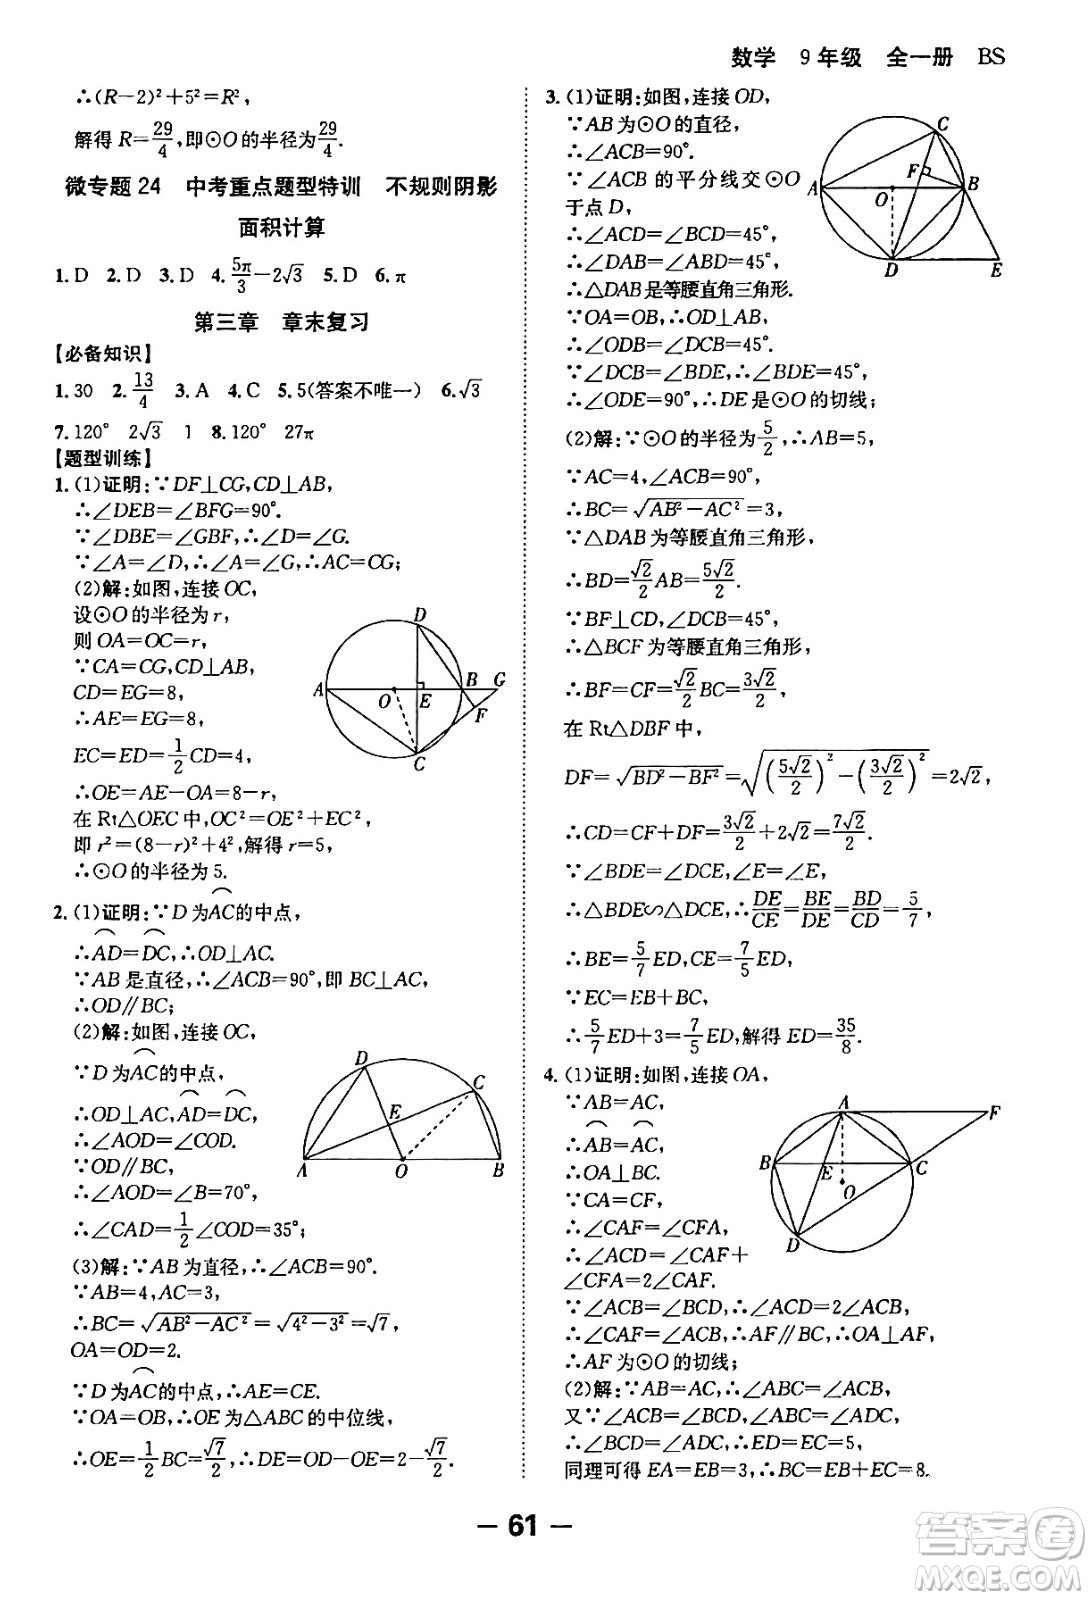 数学 9年级 全一册 BS
∴(R－2)²＋5²＝R²,
解得 R＝29/4,即⊙O的半径为29/4.
微专题24 中考重点题型特训 不规则阴影
面积计算
1.D 2.D 3.D 4.5π/3－2√3 5.D 6.π
第三章 章末复习
【必备知识】
1.30 2.13/4 3.A 4.C 5.5(答案不唯一) 6.√3
7.120° 2√3 1 8.120° 27π
【题型训练】
1.(1)证明:∵DF⊥CG,CD⊥AB,
∴∠DEB＝∠BFG＝90°.
∵∠DBE＝∠GBF,∴∠D＝∠G.
∵∠A＝∠D,∴∠A＝∠G,∴AC＝CG;
(2)解:如图,连接OC,
设⊙O的半径为r,
则OA＝OC＝r,
∵CA＝CG,CD⊥AB,
CD＝EG＝8,
∴AE＝EG＝8,
EC＝ED＝1/2CD＝4,
∴OE＝AE－OA＝8－r,
在Rt△OEC中,OC²＝OE²＋EC²,
即r²＝(8－r)²＋4²,解得r＝5,
∴⊙O的半径为5.
D
A
O
E
B
G
F
C
2.(1)证明:∵D为AC⌒的中点,
∴AD⌒＝DC⌒,∴OD⊥AC.
∵AB是直径,∴∠ACB＝90°,即BC⊥AC,
∴OD∥BC;
(2)解:如图,连接OC,
∵D为AC⌒的中点,
∴OD⊥AC,AD⌒＝DC⌒,
∴∠AOD＝∠COD.
∵OD∥BC,
∴∠AOD＝∠B＝70°,
∴∠CAD＝1/2∠COD＝35°;
(3)解:∵AB为直径,∴∠ACB＝90°.
∵AB＝4,AC＝3,
∴BC＝√(AB²－AC²)＝√(4²－3²)＝√7,
OA＝OD＝2.
∵D为AC⌒的中点,∴AE＝CE.
∵OA＝OB,∴OE为△ABC的中位线,
∴OE＝1/2BC＝√7/2,∴DE＝OD－OE＝2－√7/2.
D
C
E
A
O
B
3.(1)证明:如图,连接OD,
∵AB为⊙O的直径,
∴∠ACB＝90°.
∵∠ACB的平分线交⊙O
于点D,
∴∠ACD＝∠BCD＝45°,
∴∠DAB＝∠ABD＝45°,
∴△DAB是等腰直角三角形.
∵OA＝OB,∴OD⊥AB,
∴∠ODB＝∠OBD＝45°.
∵∠BCD＝∠BDE,∴∠BDE＝45°,
∴∠ODE＝90°,∴DE是⊙O的切线;
C
F
A
O
B
D
E
(2)解:∵⊙O的半径为5/2,∴AB＝5,
∵AC＝4,∠ACB＝90°,
∴BC＝√(AB²－AC²)＝3,
∵△DAB为等腰直角三角形,
∴BD＝√2/2AB＝5√2/2.
∵BF⊥CD,∠DCB＝45°,
∴△BCF为等腰直角三角形,
∴BF＝CF＝√2/2BC＝3√2/2,
在Rt△DBF中,
DF＝√(BD²－BF²)＝√((5√2/2)²－(3√2/2)²)＝2√2,
∴CD＝CF＋DF＝3√2/2＋2√2＝7√2/2.
∵∠BDE＝∠DCE,∠E＝∠E,
∴△BDE∽△DCE,∴DE/CE＝BE/DE＝BD/CD＝5/7,
∴BE＝5/7ED,CE＝7/5ED,
∵EC＝EB＋BC,
∴5/7ED＋3＝7/5ED,解得ED＝35/8.
4.(1)证明:如图,连接OA,
∵AB＝AC,
∴AB⌒＝AC⌒,
∴OA⊥BC.
∵CA＝CF,
∴∠CAF＝∠CFA,
∴∠ACD＝∠CAF＋
∠CFA＝2∠CAF.
∵∠ACB＝∠BCD,∴∠ACD＝2∠ACB,
∴∠CAF＝∠ACB,∴AF∥BC,∴OA⊥AF,
∴AF为⊙O的切线;
A
F
B
E
C
O
D
(2)解:∵AB＝AC,∴∠ABC＝∠ACB,
又∵∠ACB＝∠BCD,∠ABC＝∠ADC,
∴∠BCD＝∠ADC,∴ED＝EC＝5,
同理可得EA＝EB＝3,∴BC＝EB＋EC＝8.
－ 61 －
答案卷
MXQE.COM